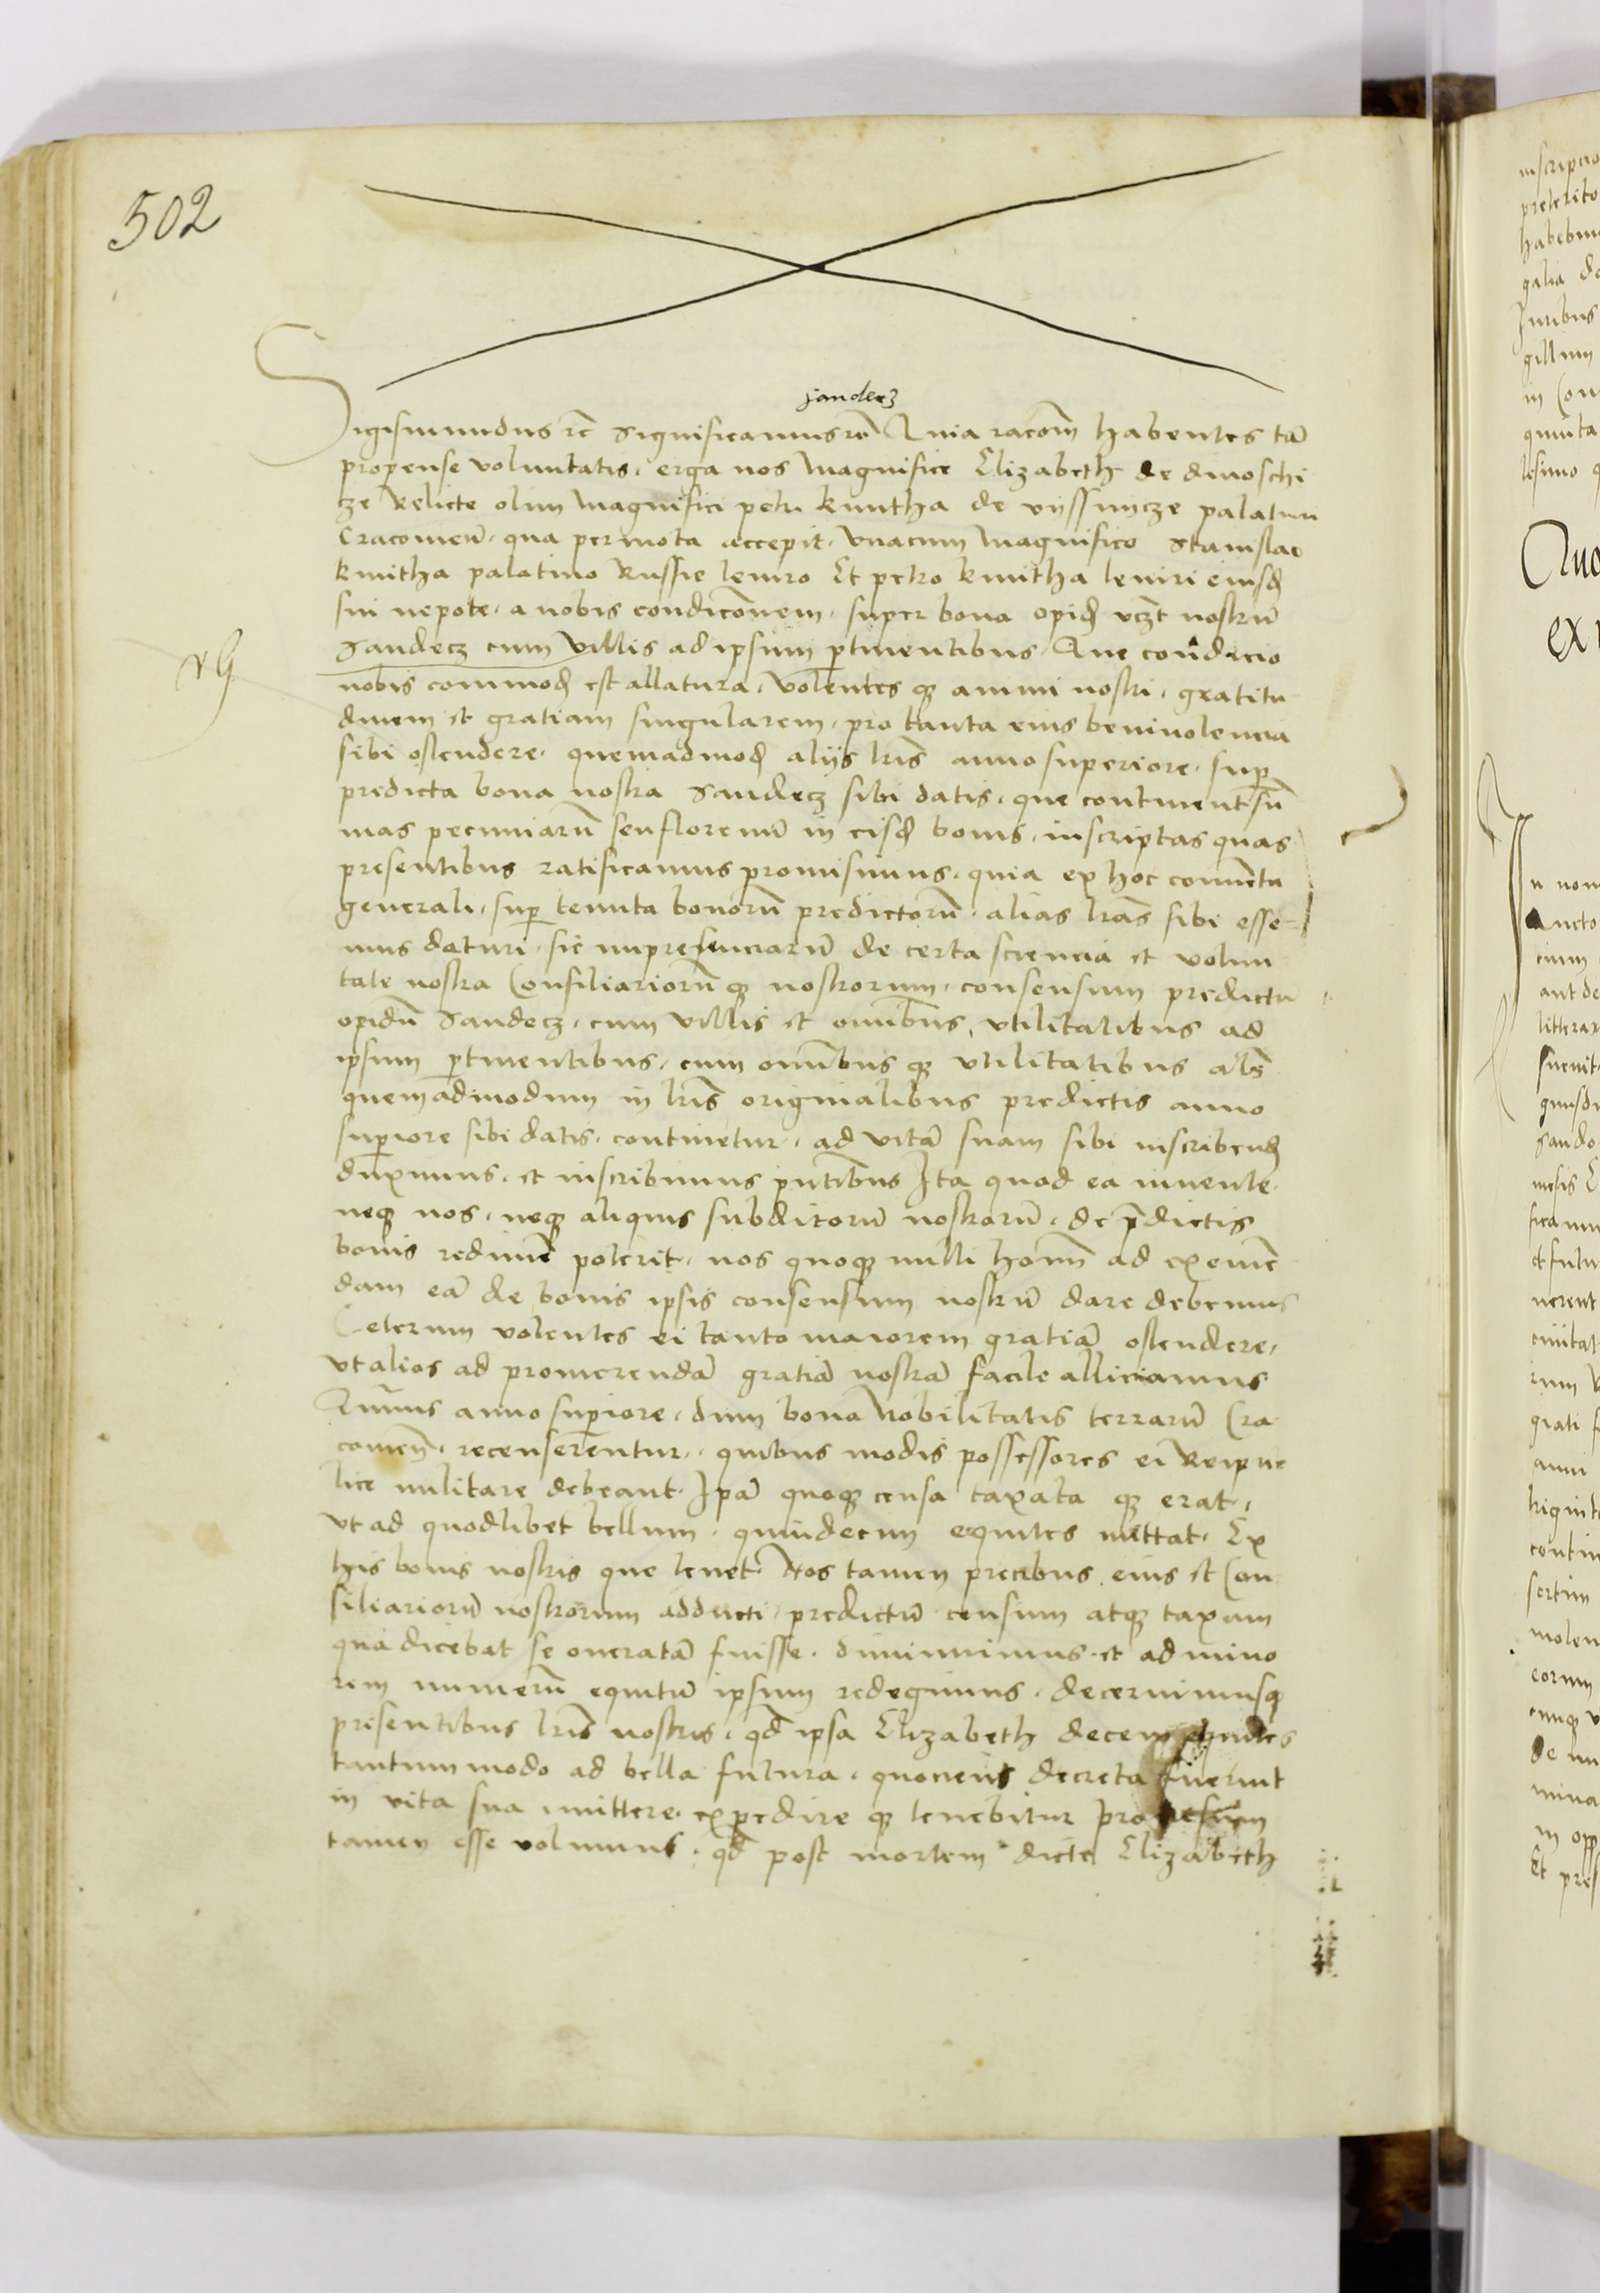 502
sandecz
Sigismundus rc̄ Significamus rc̄ Quia racōm habentes tā
propense voluntatis, erga nos Magnifice Elizabeth de dmoschi
cze Relicte olim Magnifici petri kmitha de vyssnycze palatini
Cracovieñ. qua permota accepit, vnacum Magnifico Stanislao
kmitha palatino Russie leviro Et petro kmitha leviri eiusd
sui nepote, a nobis condicōnem, super bona opid vczt nostrū
Sandecz cum villis ad ipsum ptinentibus. Que condicio
rG
nobis commod est allatura, volentes q animi nostri, gratitu
dinem et gratiam singularem, pro tanta eius benivolencia
sibi ostendere, quemadmod alijs lris anno superiore, sup
predicta bona nostra Sandecz sibi datis, que continent sū
mas pecuniarū seu florenū in eisd bonis, inscriptas quas
presentibus ratificamus promisimus, quia ex hoc conventu
generali, sup tenuta bonorū predictorū, alias lras sibi esse
mus daturi, sic inpresenciarū de certa sciencia et volun
tate nostra Consiliariorūq nostrorum, consensum predictū
opidū Sandecz, cum villis et omībus, vtilitatibus ad
ipsum ptinentibus, cum omībus q vtilitatibus als
quemadmodum in lris originalibus predictis anno
supiore sibi datis, continetur, ad vitā suam sibi inscribend
duximus, et inscribimus pntibus Ita quod ea vivente
neq nos, neq aliquis subditorū nostrorū, de p̄dictis
bonis redimē poterit, nos quoq nulli homī ad eximē
dam eā de bonis ipsis consensum nostrū dare debemus
Ceterum volentes ei tanto maiorem gratiā ostendere,
vt alios ad promerendā gratiā nostrā facile alliciamus
Quius anno supiore, dum bona Nobilitatis terrarū Cra
covieñ, recenserentur, quibus modis possessores ei Reipu
lice militare debeant. Ipā quoq censa taxata q erat,
vt ad quodlibet bellum, quindecim equites mittat, Ex
his bonis nostris que tenet. Nos tamen precibus eius et Con
siliariorū nostrorum adducti, predictū censum atq taxam
qua dicebat se oneratā fuisse, diminuimus, et ad mino
rem numerū equitū ipsum redegimus, decernimusq
presentibus lris nostris, qd ipsa Elizabeth decem equites
tantummodo ad bella futura, quociens decreta fuerint
in vita sua mittere, expedire q tenebitur
tamen esse volumus, qd post mortem dicte Elizabeth